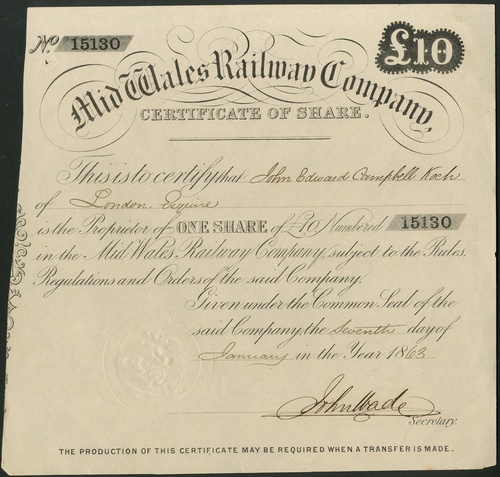 No. 15130
£10
Mid Wales Railway Company,
CERTIFICATE OF SHARE.
This is to certify that John Edward Campbell Koch
of London Esquire
is the Proprietor of ONE SHARE of £10 Numbered 15130
in the Mid Wales Railway Company, subject to the Rules,
Regulations and Orders of the said Company.
Given under the Common Seal of the
said Company, the Seventh day of
January in the Year 1863
John Wade
Secretary.
THE PRODUCTION OF THIS CERTIFICATE MAY BE REQUIRED WHEN A TRANSFER IS MADE.